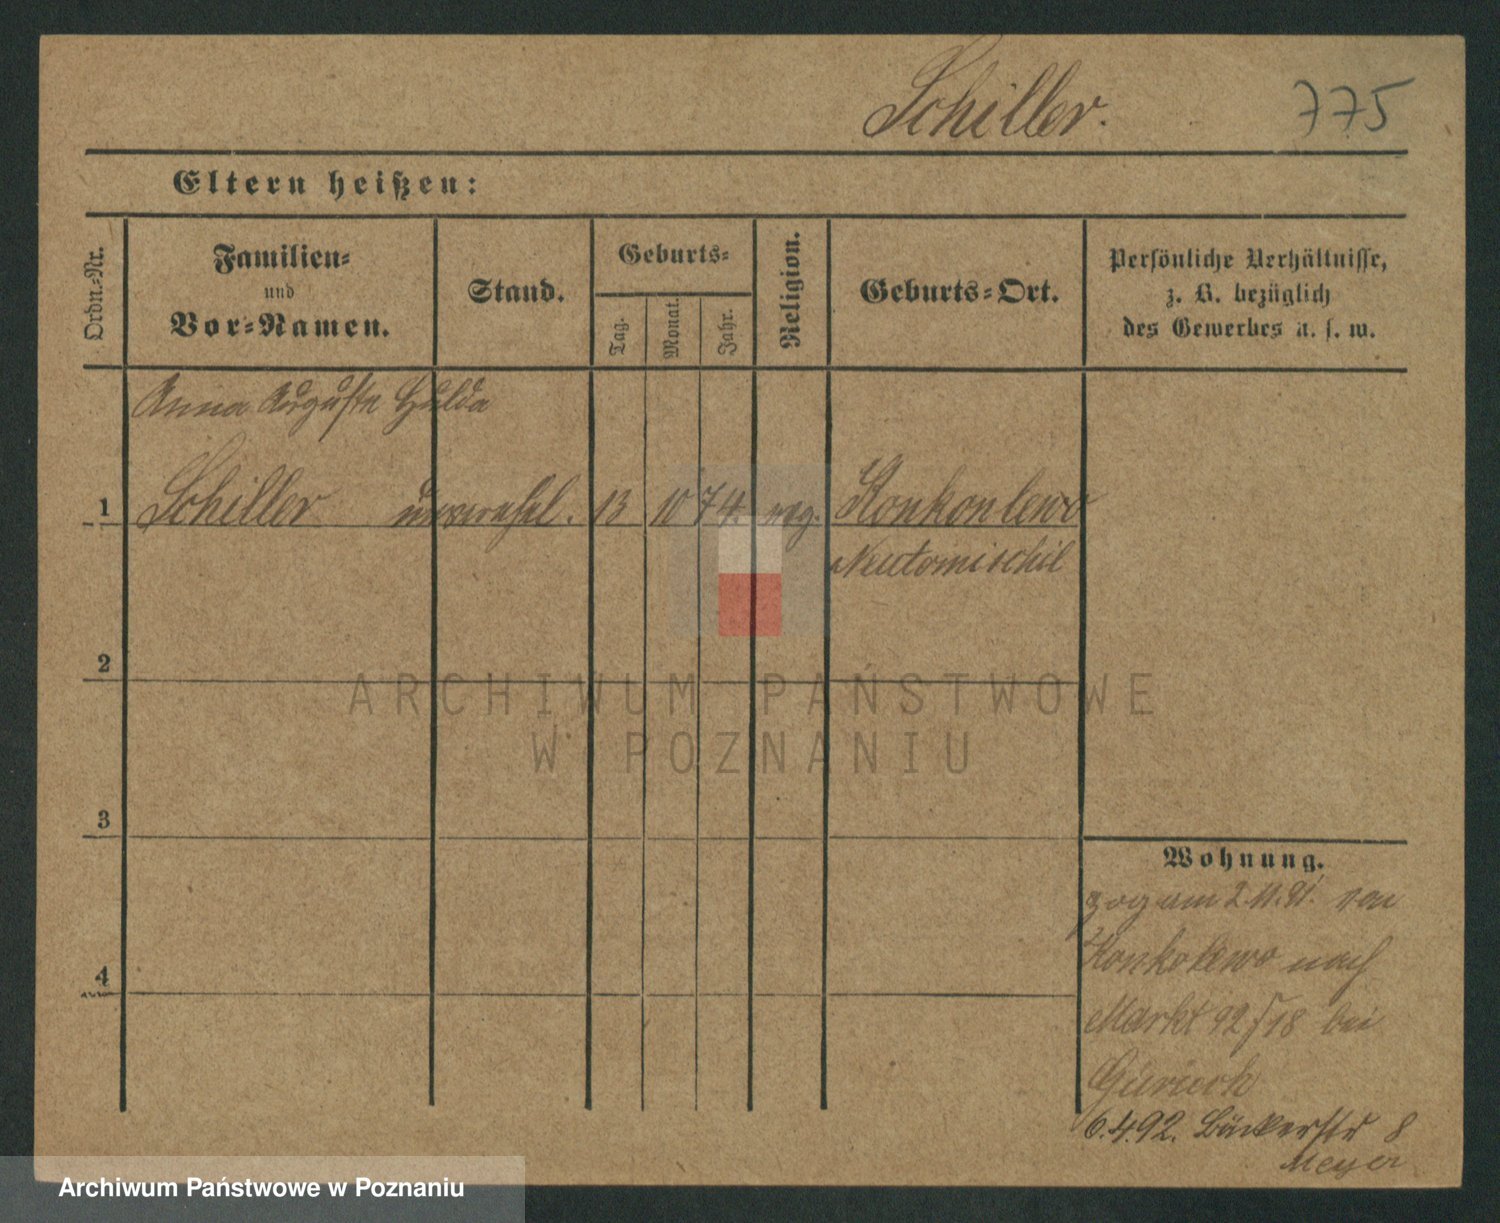 Schiller.
775
Eltern heißen:
Ordn.-Nr.
Familien-
und
Vor-Namen.
Stand.
Geburts-
Tag.
Monat.
Jahr.
Religion.
Geburts-Ort.
Persönliche Verhältnisse,
z. B. bezüglich
des Gewerbes u. s. w.
Anna Auguste Hulda
1 Schiller unverehel. 13 10 74. evg. Konkolewo
Neutomischil
2
ARCHIWUM PAŃSTWOWE
W POZNANIU
3
Wohnung.
zog am 2.11.91. von
Konkolewo nach
4
Markt 92/18 bei
6.4.92. Bäckerstr 8
Meyer
Archiwum Państwowe w Poznaniu